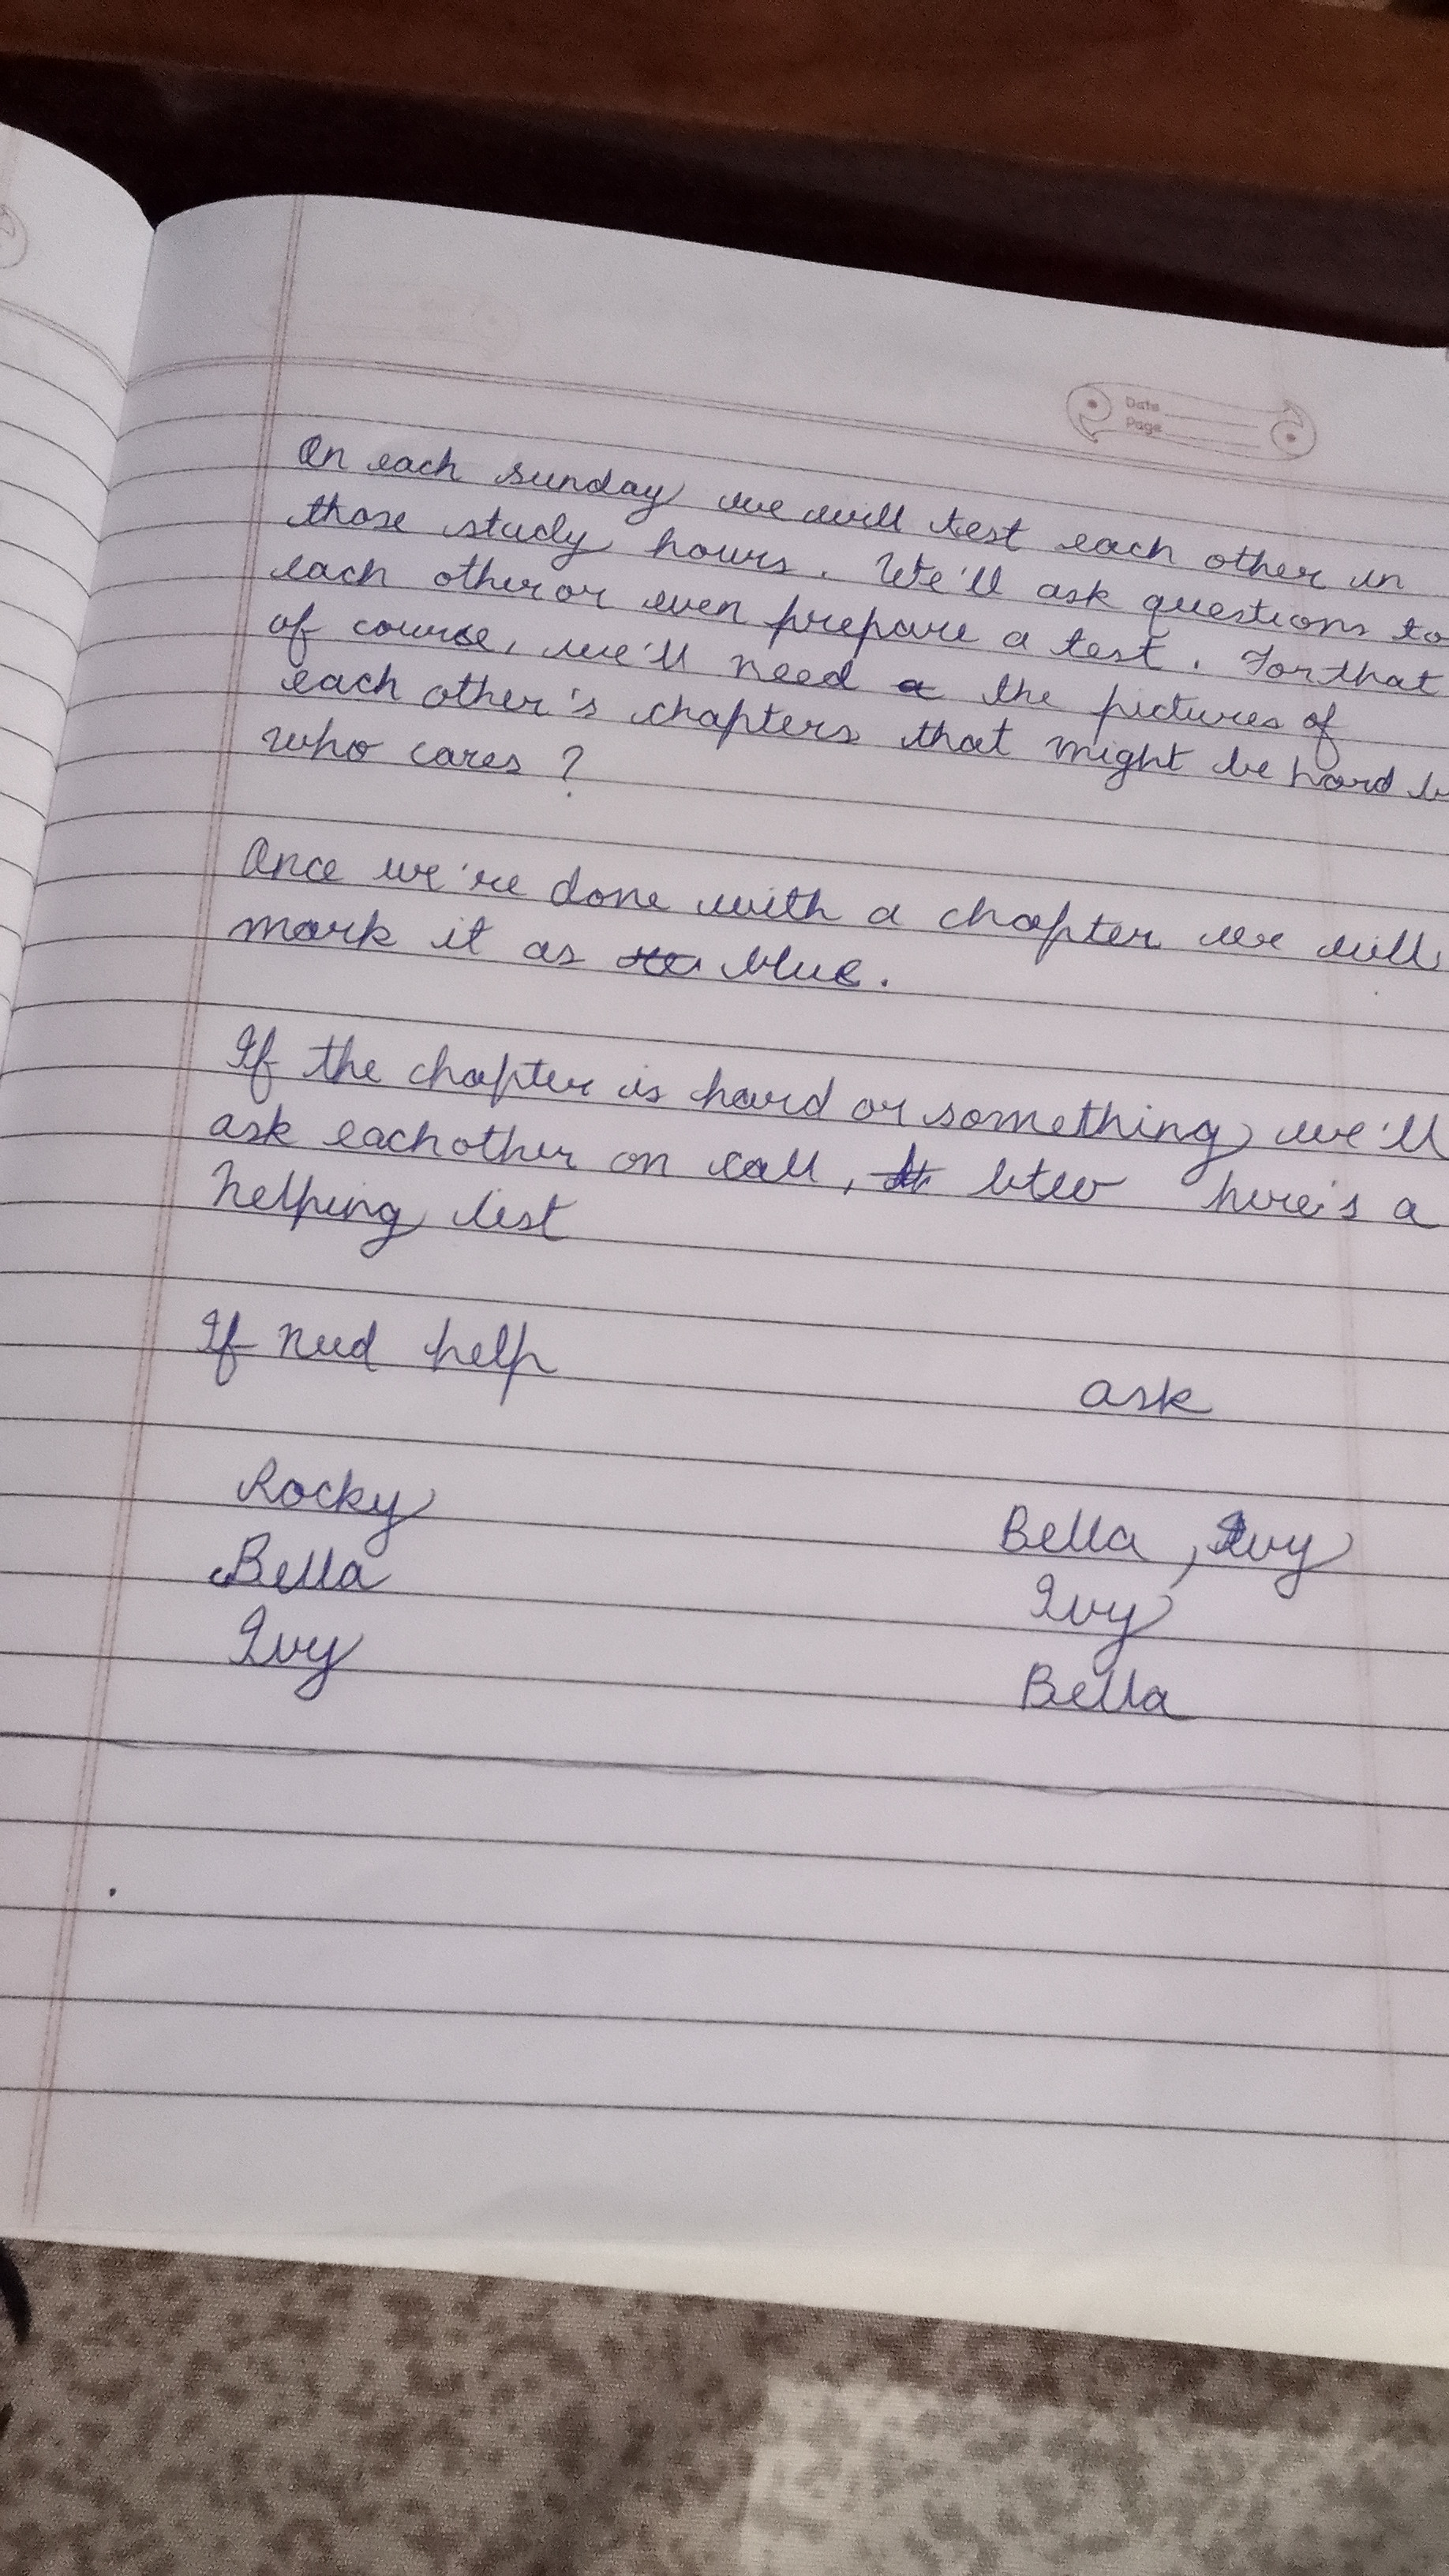 Date
Page
On each sunday we will test each other in
those study hours. We'll ask questions to
each other or even prepare a test. For that
of course, we'll need a the pictures of
each other's chapters that might be hard b
who cares ?
Once we're done with a chapter we will
mark it as blue.
If the chapter is hard or something we'll
ask eachother on call, btw here's a
helping list
If need help ask
Rocky Bella, Ivy
Bella Ivy
Ivy Bella